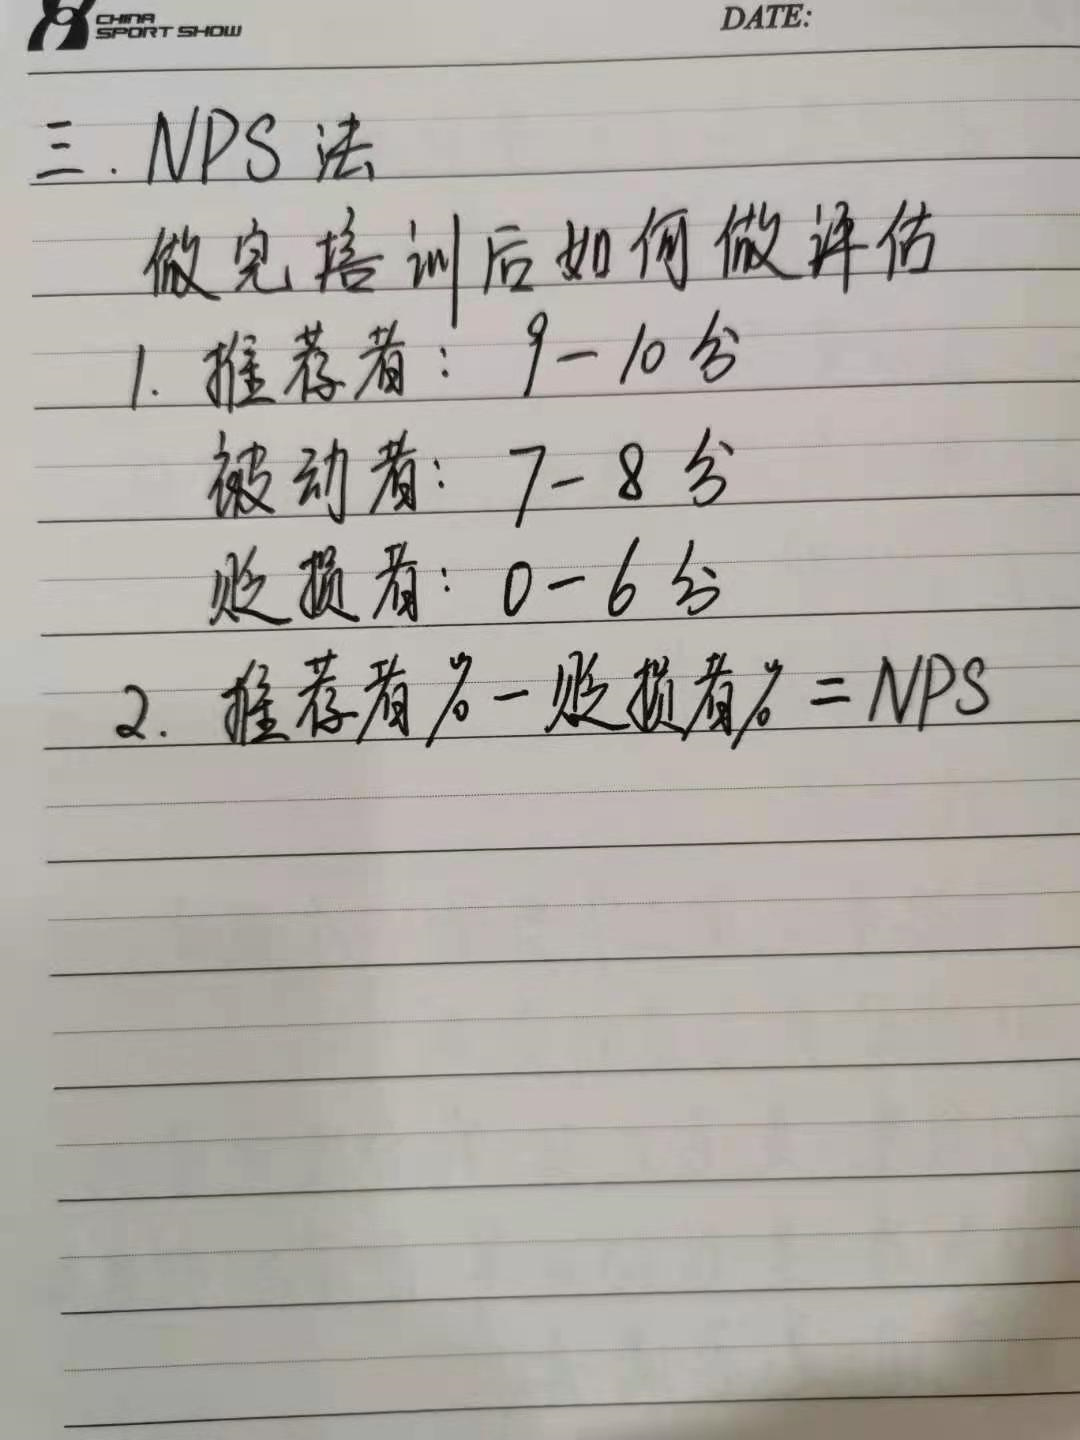 CHINA
SPORT SHOW
DATE:
三. NPS 法
做完培训后如何做评估
1. 推荐者: 9-10分
被动者: 7-8分
贬损者: 0-6分
2. 推荐者%-贬损者%=NPS